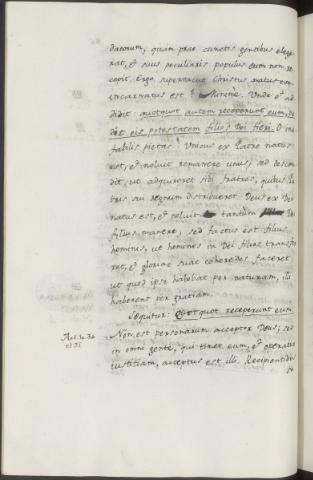 daeorum, quam prae cunctis gentibus elege-
rat, et suus peculiaris populus eum non re-
cepit. Ergo supervacue Christus natus est,
incarnatus est? Minime. Unde et ad
didit: quotquot autem receperunt eum, de
dit eis potestatem filios Dei fieri. O inef
fabilis pietas! Unicus ex Patre natus
est, et noluit remanere unus, sed descen
dit, ut adquireret sibi fratres, quibus Pa
tris sui regnum distribueret. Deus ex Deo
natus est, et noluit tantum Dei
filius manere, sed factus est filius
hominis, ut homines in Dei filios transfer
ret, et gloriae suae cohaeredes faceret
ut quod ipse habebat per naturam, illi
haberent per gratiam.
Sequitur: Quotquot receperunt eum.
Act. 10. 34
et 35
Non est personarum acceptor Deus; sed
in omni gente, qui timet eum, et operatur
iustitiam, acceptus est illi. Recipientibus